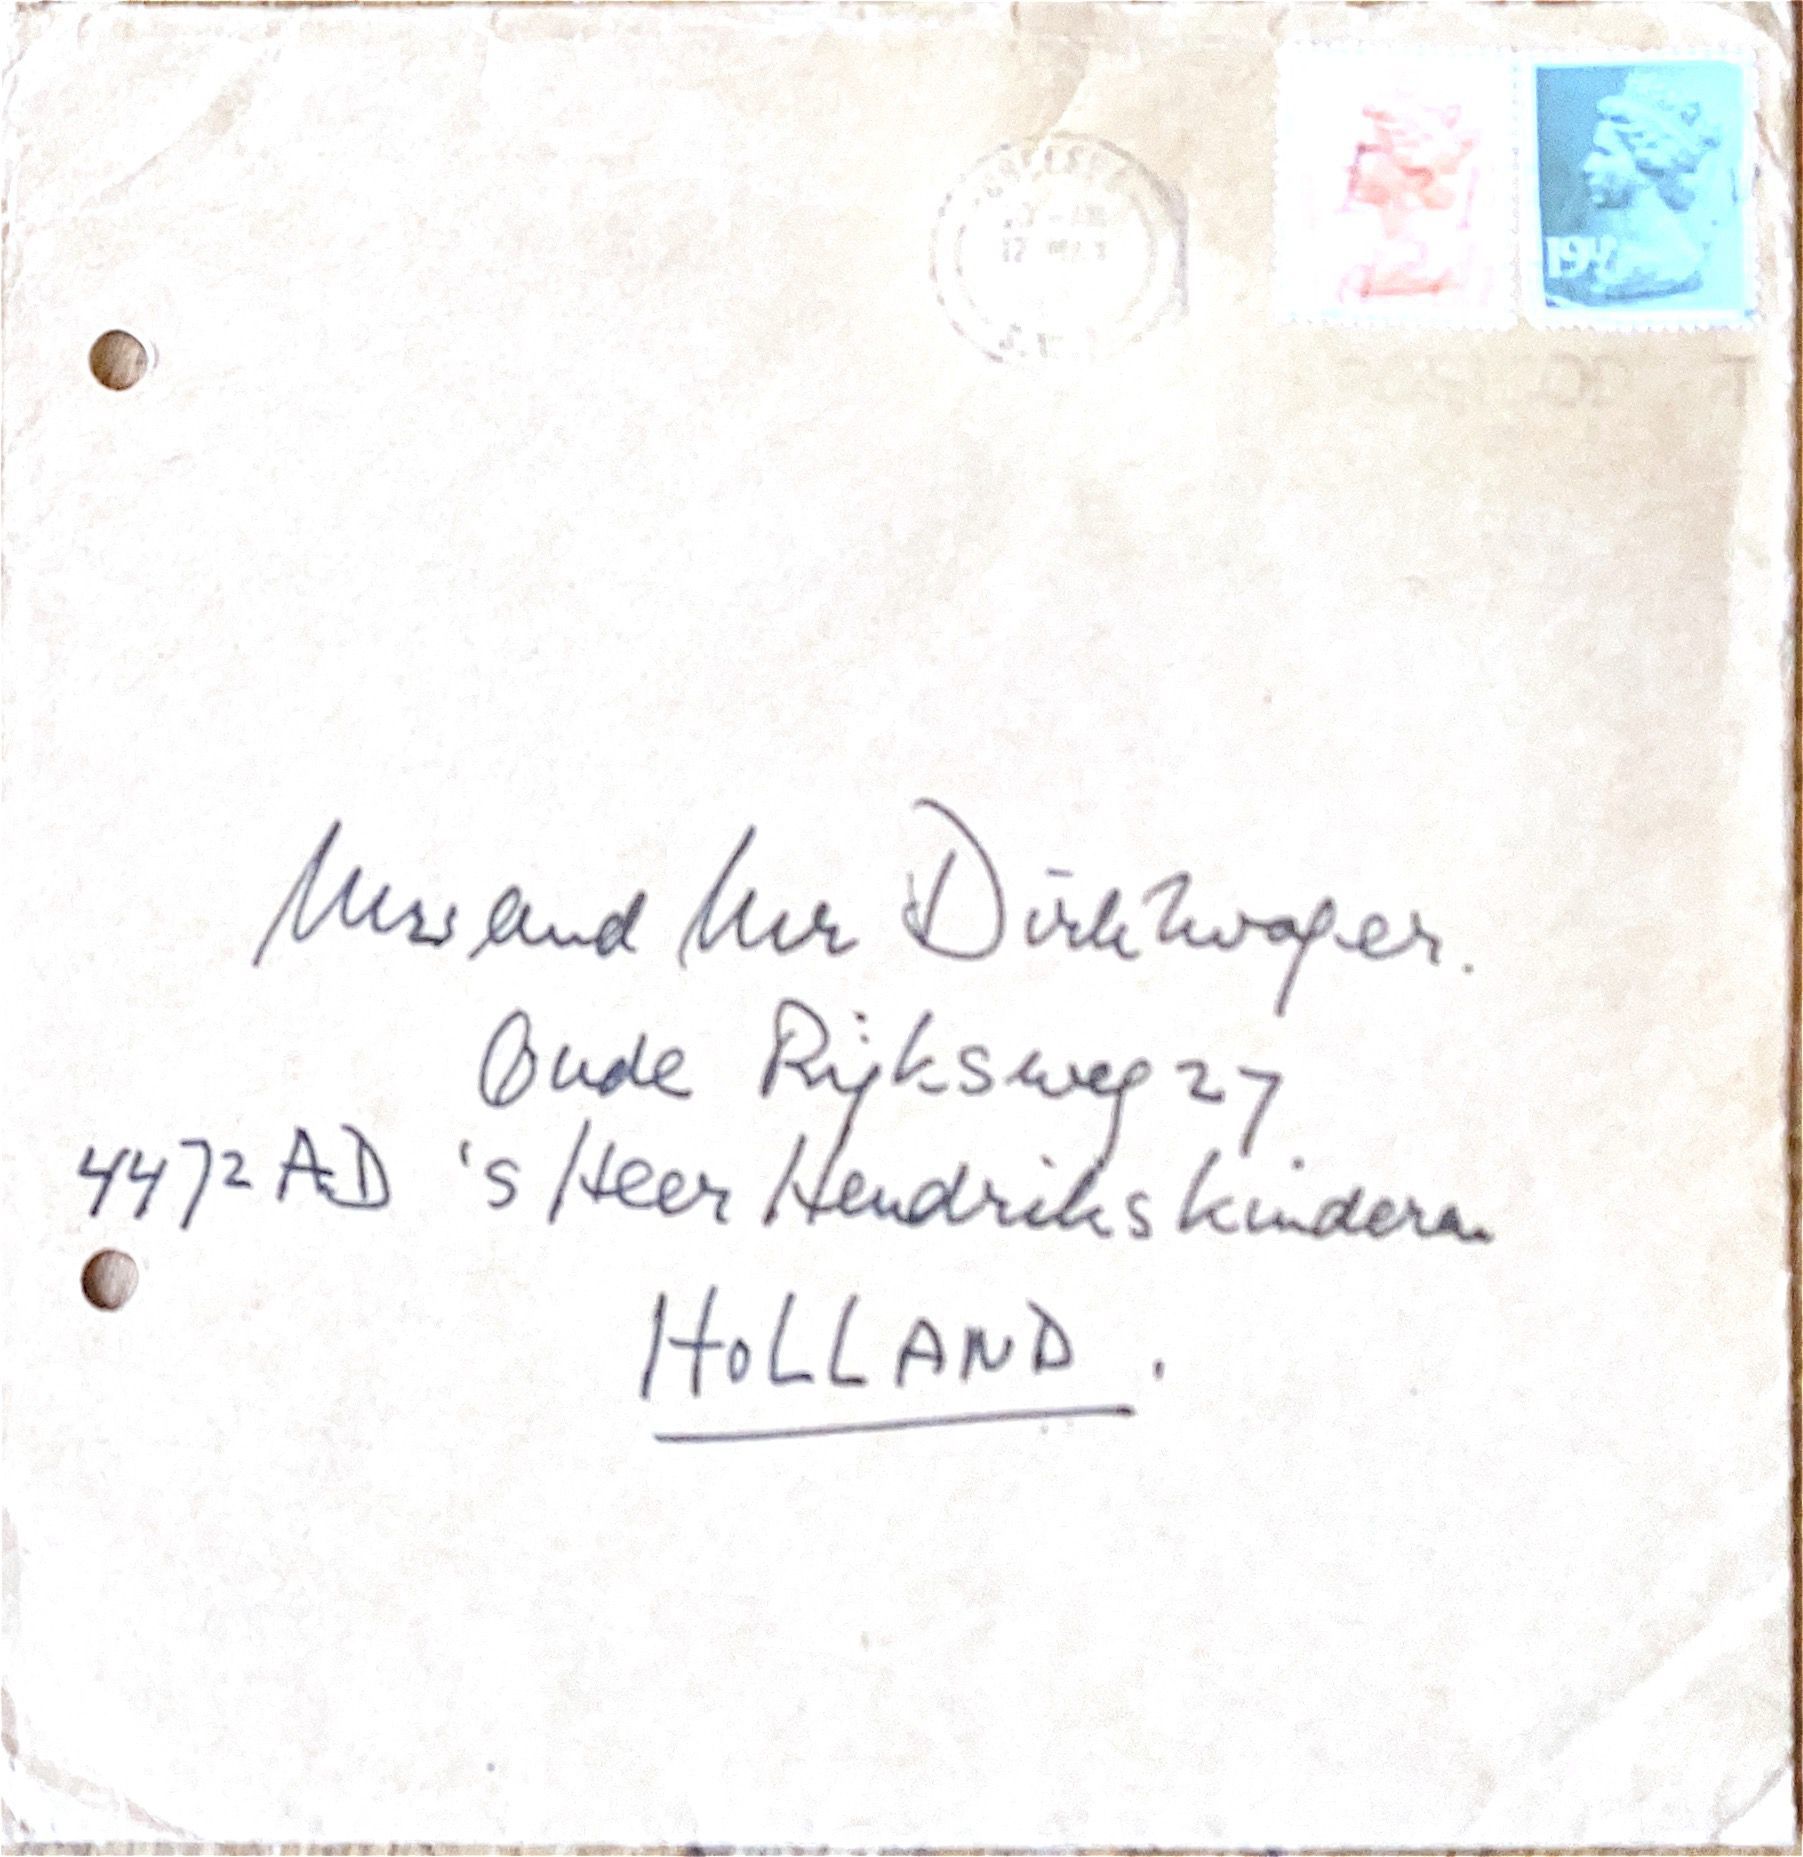 19½
Mrs and Mr Dirkzwager.
Oude Rijksweg 27
4472 AD 's Heer Hendrikskinderen
HOLLAND.